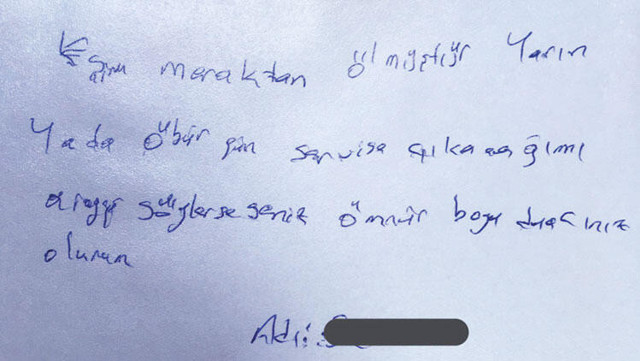 Eşim meraktan ölmüştür Yarın
Yada Öbür gün servise çıkacağımı
arayıp söylerseseniz ömnür boyu duacınız
olurum
Adı: